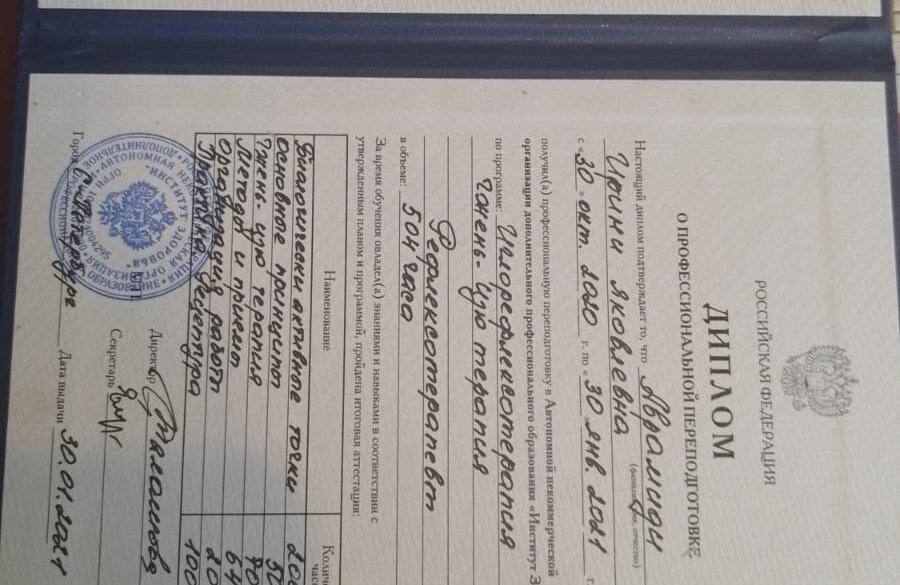 РОССИЙСКАЯ ФЕДЕРАЦИЯ
ДИПЛОМ
О ПРОФЕССИОНАЛЬНОЙ ПЕРЕПОДГОТОВКЕ
Настоящий диплом подтверждает то, что Аврамиди
(фамилия, имя, отчество)
Ирини Яковлевна
с «30» окт. 2020 г. по «30» янв. 2021 г.
получил(а) профессиональную переподготовку в Автономной некоммерческой
организации дополнительного профессионального образования «Институт З
по программе: Иглорефлексотерапия
Чжень-Цзю терапия
Рефлексотерапевт
в объеме: 504 часа
За время обучения овладел(а) знаниями и навыками в соответствии с
утвержденным планом и программой, пройдена итоговая аттестация:
Наименование Количе
часо
Биологически активные точки 200
Основные принципы 50
Чжень-Цзю терапия 70
Методы и приемы 64
Организация работы 20
Практика, рецептура 100
Директор
Секретарь
М.П.
АВТОНОМНАЯ НЕКОММЕРЧЕСКАЯ ОРГАНИЗАЦИЯ
"ИНСТИТУТ ЗДОРОВЬЯ"
Город С.Петербург Дата выдачи 30.01.2021